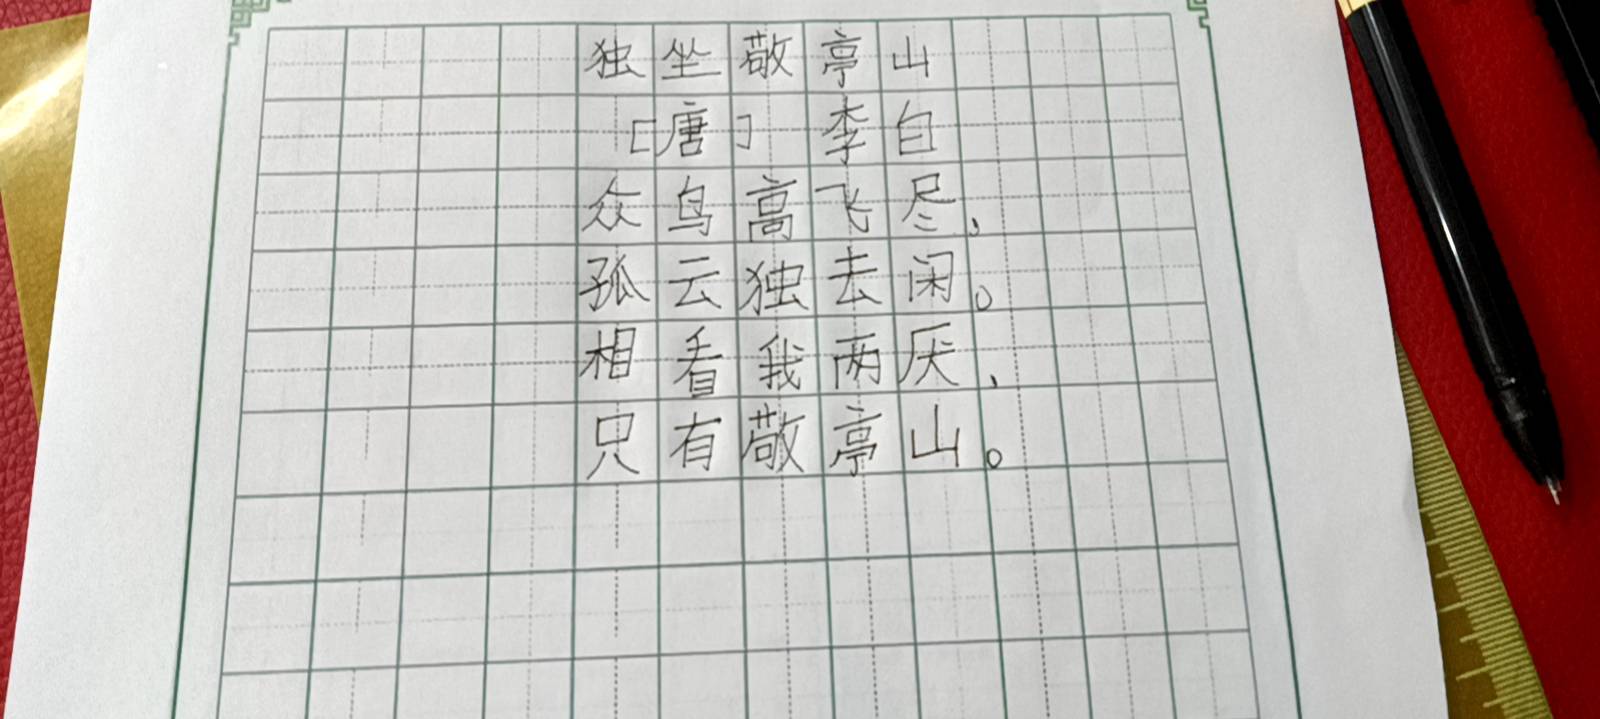 独坐敬亭山
[唐] 李白
众鸟高飞尽,
孤云独去闲。
相看我两厌,
只有敬亭山。